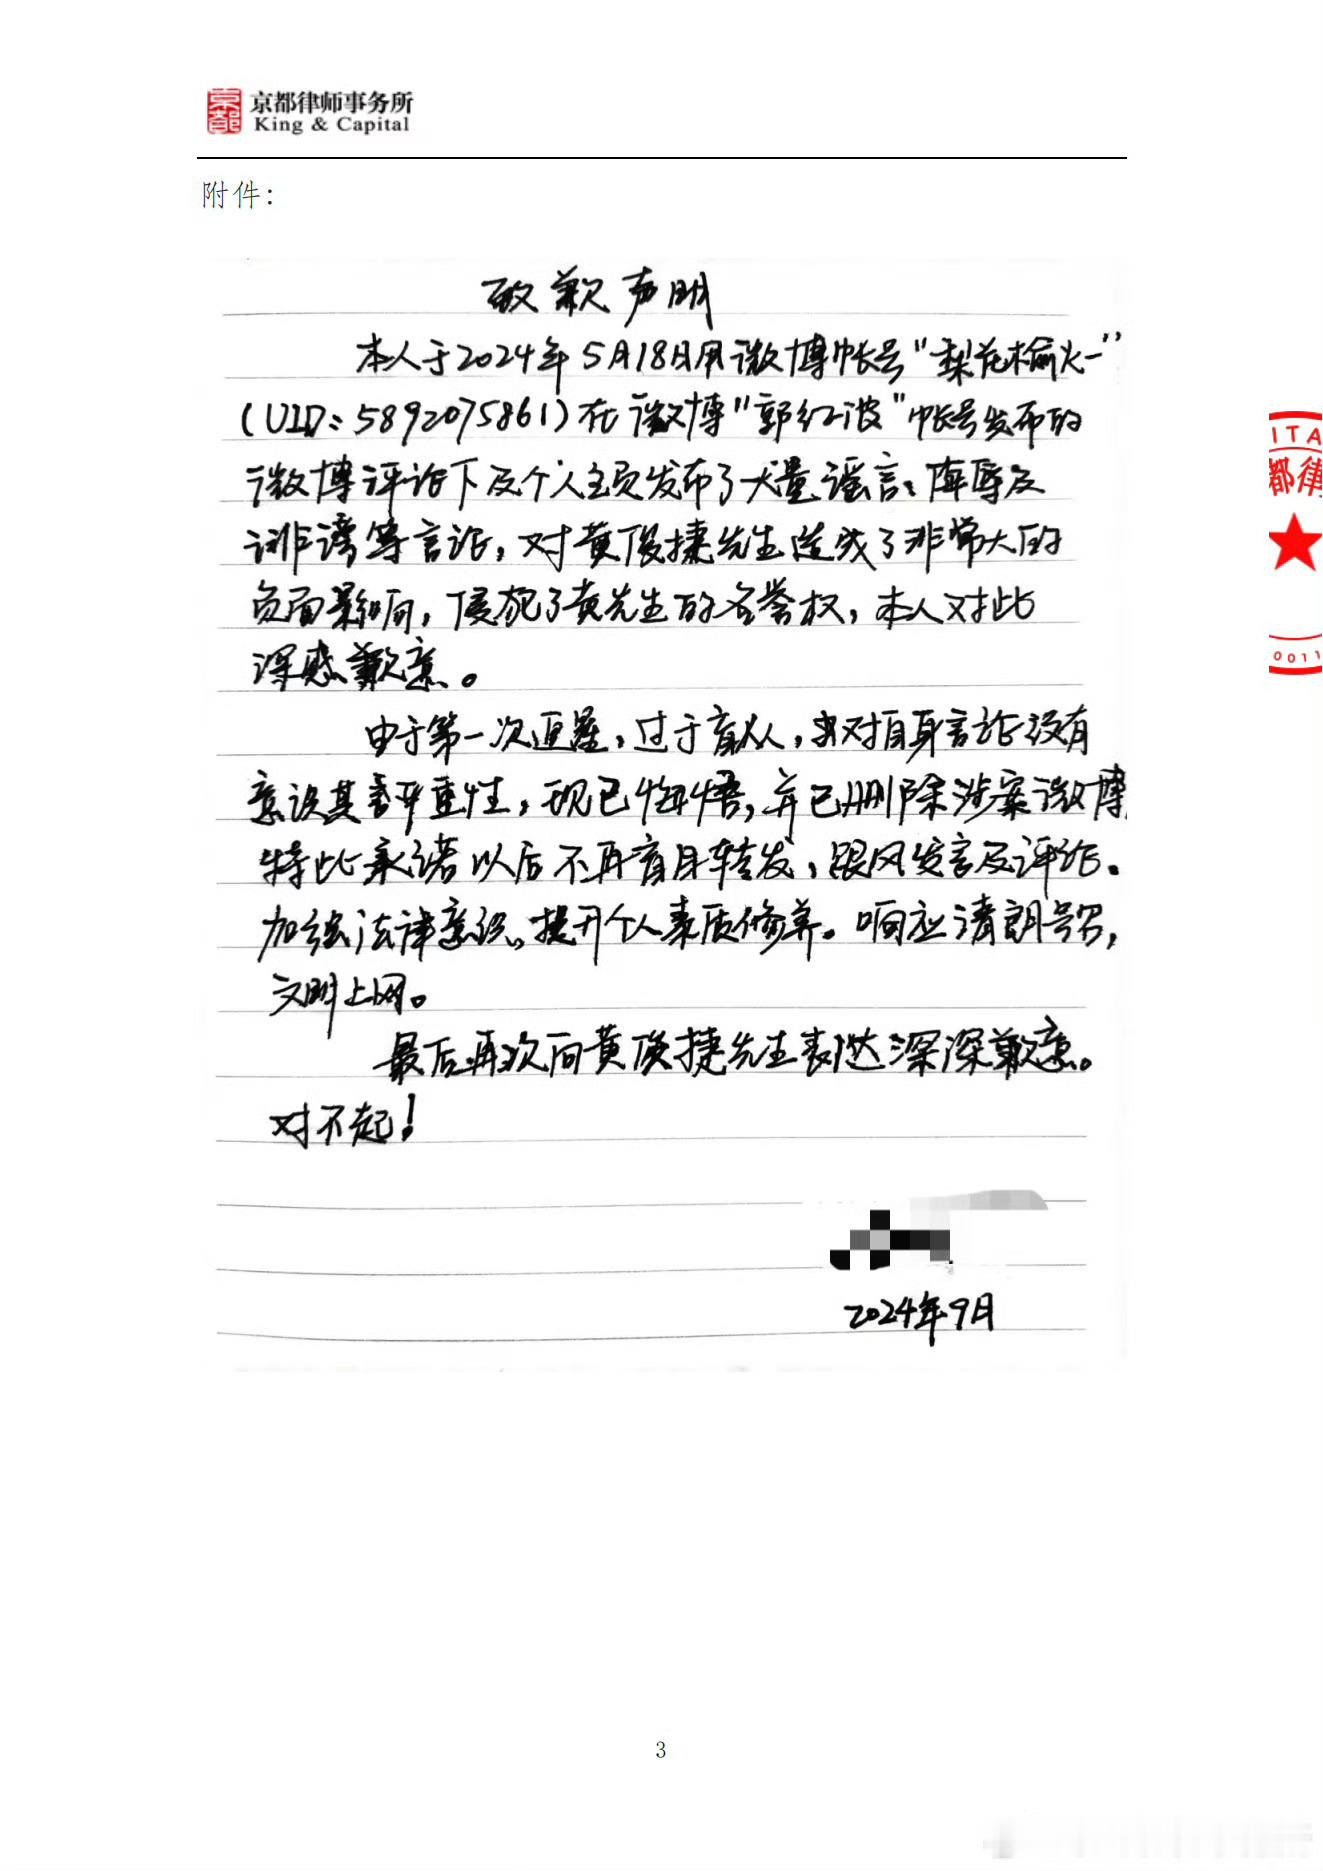 京都律师事务所
King & Capital
附件：
致歉声明
本人于2024年5月18日用微博帐号“梨花榆火一”
（UID：5892075861）在微博“郭红波”帐号发布的
微博评论下及个人主页发布了大量谣言、侮辱及
诽谤等言论，对黄俊捷先生造成了非常大的
负面影响，侵犯了黄先生的名誉权，本人对此
深感歉意。
由于第一次追星，过于盲从，对自身言论没有
意识其严重性，现已悔悟，并已删除涉案微博，
特此承诺以后不再盲目转发，跟风发言及评论。
加强法律意识、提升个人素质修养。响应清朗号召，
文明上网。
最后再次向黄俊捷先生表达深深歉意。
对不起！
2024年9月
ITA
都律
0011
3